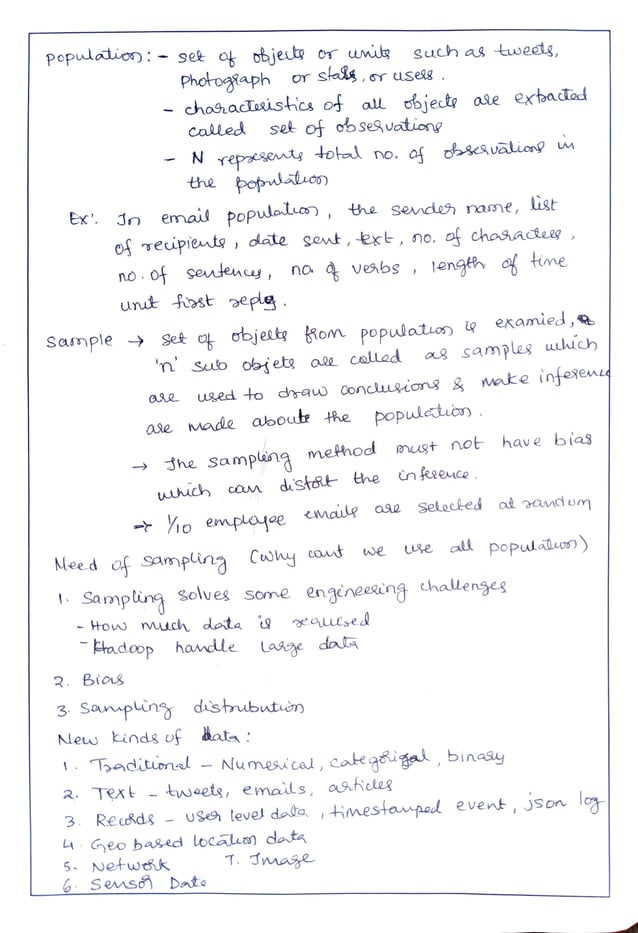 population: - set of objects or units such as tweets,
photograph or stars, or users.
- characteristics of all objects are extracted
called set of observations
- N represents total no. of observations in
the population
Ex: In email population, the sender name, list
of recipients, date sent, text, no. of characters,
no. of sentences, no of verbs, length of time
unit first reply.
Sample → set of objects from population is examied,
'n' sub objets are called as samples which
are used to draw conclusions & make inference
are made about the population.
→ The sampling method must not have bias
which can distort the inference.
→ 1/10 employee emails are selected at random
Need of sampling (why cant we use all population)
1. Sampling solves some engineering challenges
- How much data is required
- Hadoop handle large data
2. Bias
3. Sampling distribution
New kinds of data:
1. Traditional - Numerical, categorigal, binary
2. Text - tweets, emails, articles
3. Records - user level data, timestamped event, json log
4. Geo based location data
5. Network 7. Image
6. Sensor Date